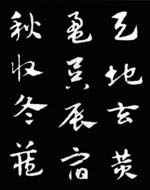 天地玄黄
盈昃辰宿
秋收冬藏